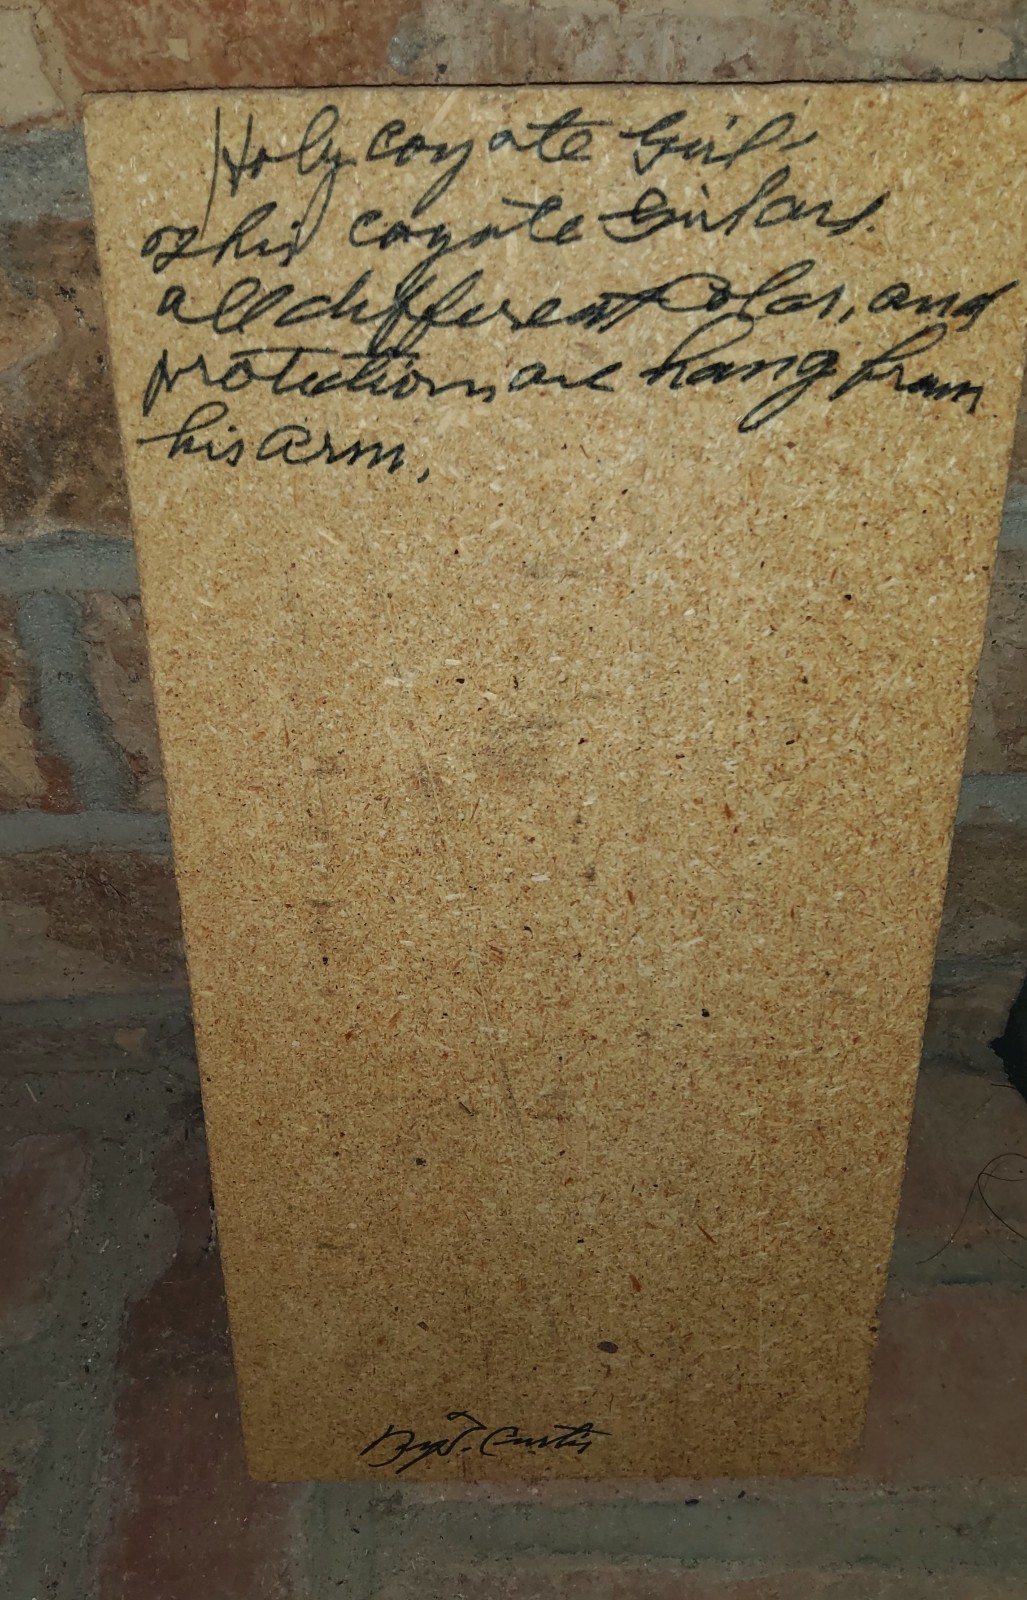 Holy coyote Girl's
This coyote Girl are.
all different Color, and
protection, are hang from
his arm,
Curtis